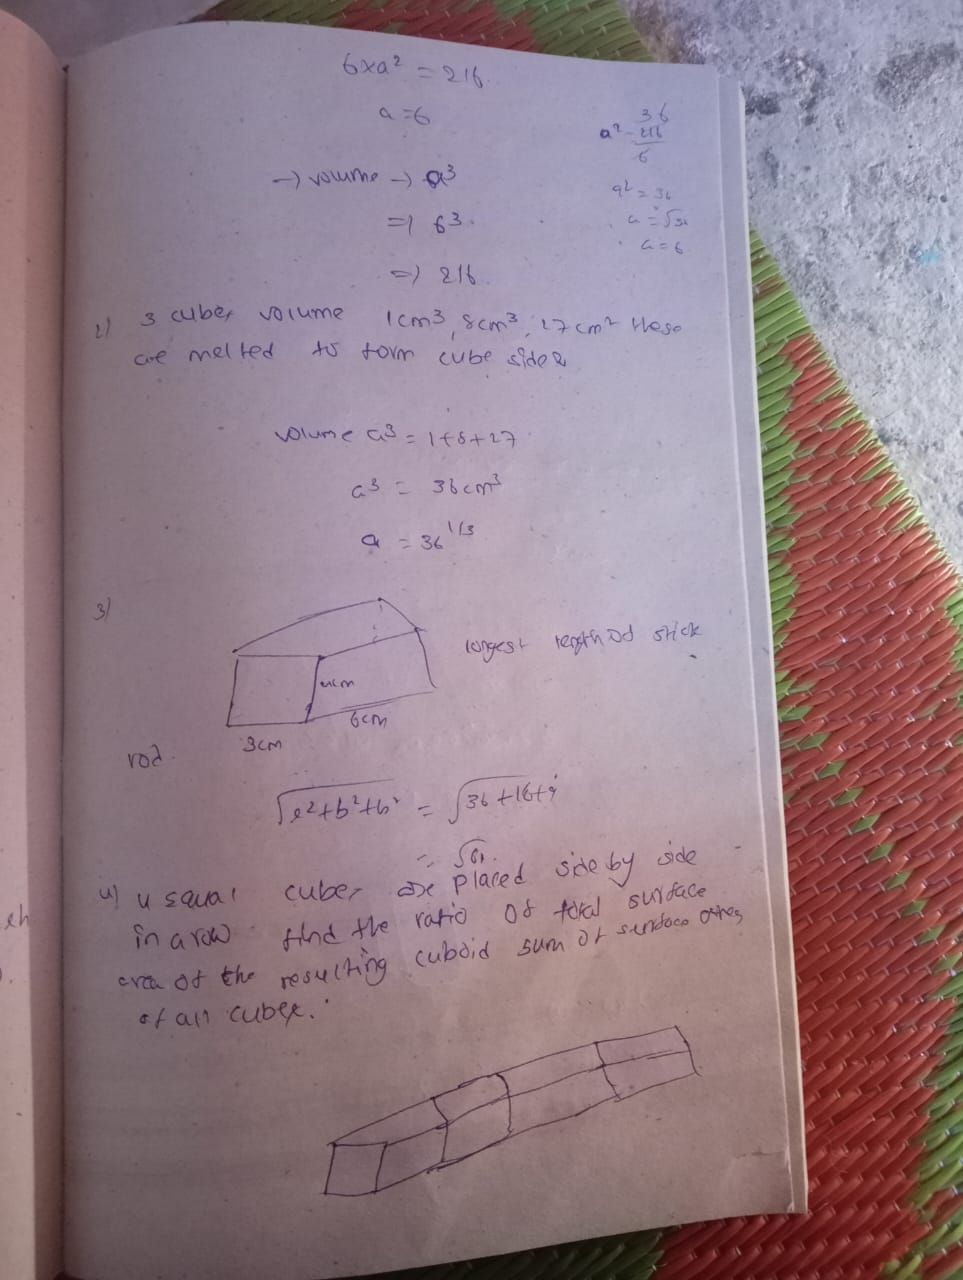 6xa² = 216
a=6
36
a² - 216
6
→ volume → a³
a² = 36
⇒ 6³.
a = √36
a=6
⇒ 216
2) 3 cubes volume 1cm³, 8cm³, 27cm² these
are melted to form cube side?
volume a³ = 1+8+27
a³ = 36cm³
a = 36^1/3
3)
longest length of stick
4cm
6cm
3cm
rod.
√l²+b²+h² = √36+16+9
= √61.
4) 4 equal cubes are placed side by side
in a row find the ratio of total surface
area of the resulting cuboid sum of surface
of all cubes.